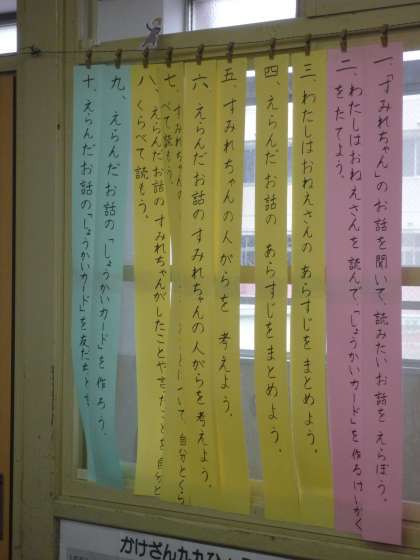 一、「すみれちゃん」のお話を聞いて、読みたいお話をえらぼう。
二、わたしはおねえさんを読んで、「しょうかいカード」を作るけいかく
をたてよう。
三、わたしはおねえさんの あらすじをまとめよう。
四、えらんだお話の あらすじをまとめよう。
五、すみれちゃんの人がらを 考えよう。
六、えらんだお話のすみれちゃんの人がらを考えよう。
七、すみれちゃんの について、自分とくら
べて読もう。
八、えらんだお話のすみれちゃんがしたことや言ったことを自分と
くらべて読もう。
九、えらんだお話の「しょうかいカード」を作ろう。
十、えらんだお話の「しょうかいカード」を友だちと
かけざん九九ひょう